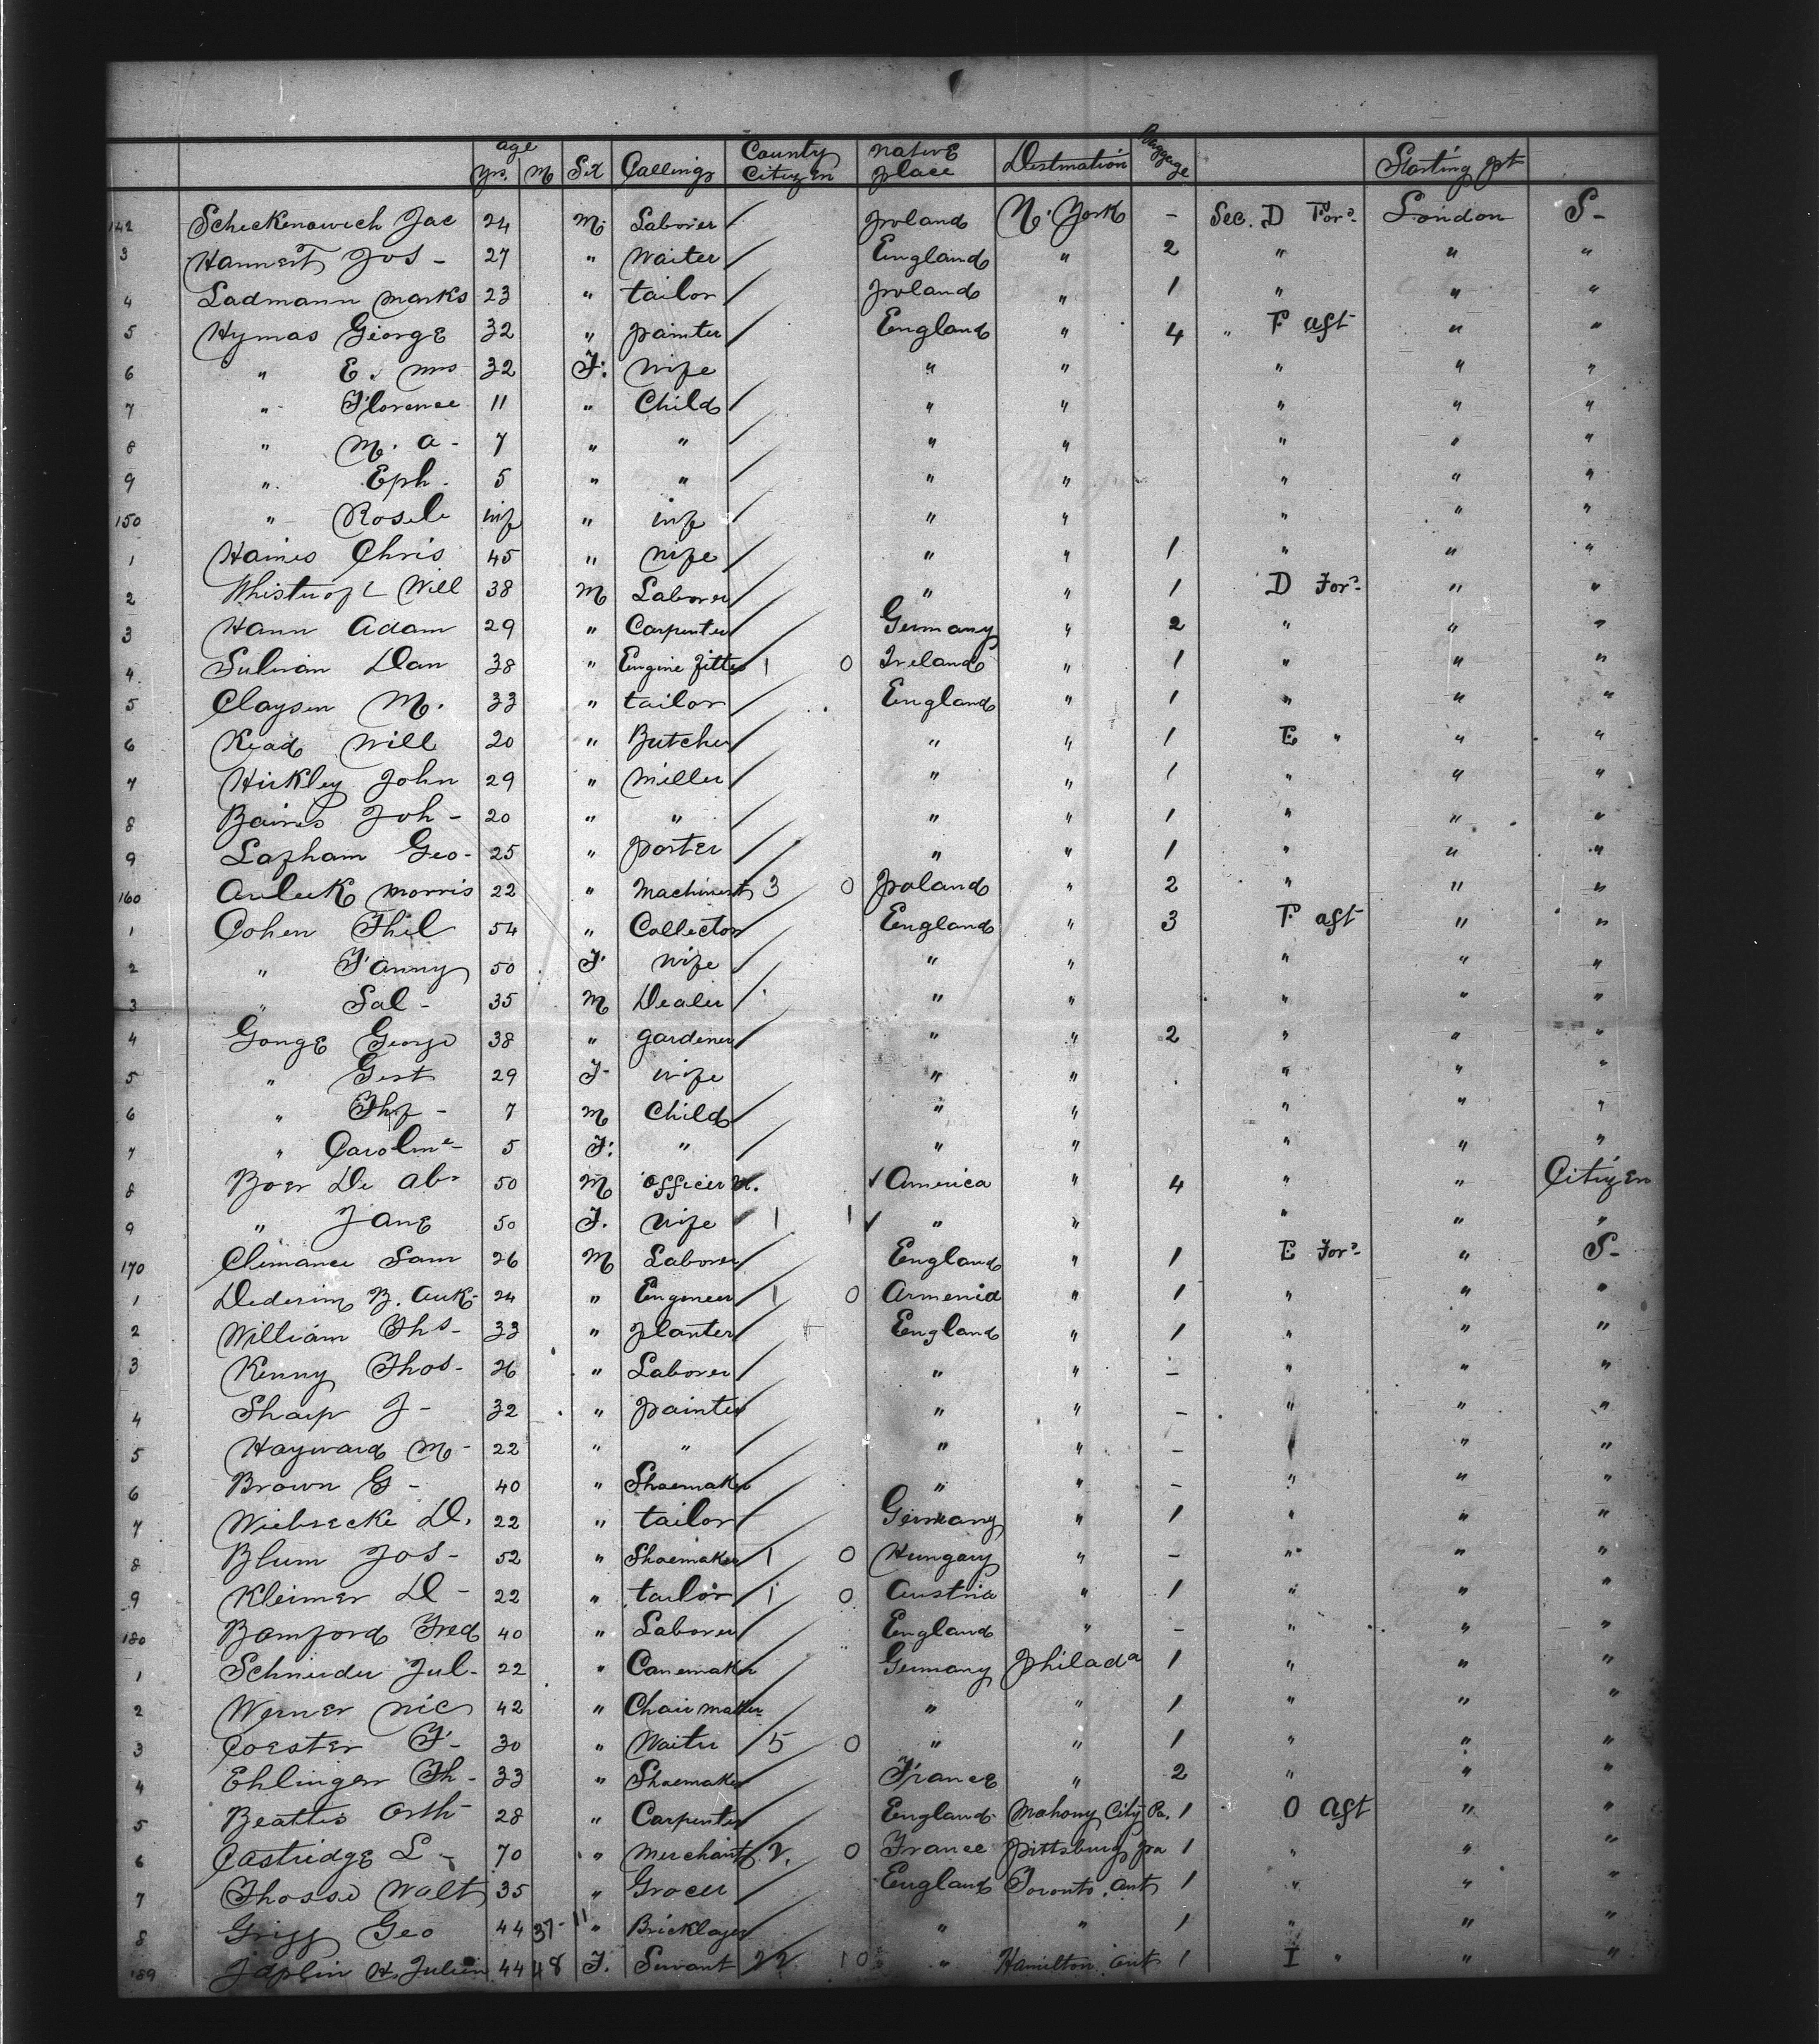 age County native Baggage
Yrs. M Sex Callings Citizen place Destination Starting pt
142 Scheckenowich Jac 24 M. Laborer / Poland N. York - Sec. D For. London S-
3 Hannert Jos - 27 " Waiter / England " 2 " " "
4 Ladmann Marks 23 " tailor / Poland " 1 " " "
5 Hymas George 32 " painter / England " 4 " F aft " "
6 " E. Mrs 32 F. Wife " " " " "
7 " Florence 11 " Child / " " " " "
8 " M. A - 7 " " / " " " " "
9 " Eph - 5 " " / " " " " "
150 " Roseli inf " inf / " " " " "
1 Haines Chris 45 " Wife / " " 1 " " "
2 Will 38 M Laborer / " " 1 D For. " "
3 Hann Adam 29 " Carpenter / Germany " 2 " " "
4 Sulivan Dan 38 " Engine fitter 1 0 Ireland " 1 " " "
5 Claysen M. 33 " tailor / England " 1 " " "
6 Read Will 20 " Butcher / " " 1 E " " "
7 Hirkley John 29 " Miller / " " 1 " " "
8 Baines Joh - 20 " " / " " 1 " " "
9 Lapham Geo - 25 " porter / " " 1 " " "
160 Morris 22 " Machinist 3 0 Poland " 2 " " "
1 Cohen Phil 54 " Collector / England " 3 F aft " "
2 " Fanny 50 F. Wife / " " " " "
3 " Sal - 35 M Dealer / " " " " "
4 Gonge George 38 " gardener / " " 2 " " "
5 " Gert 29 F- wife " " " " "
6 " - 7 M Child / " " " " "
7 " Caroline - 5 F. " / " " " " "
8 Boer De Ab - 50 M officer ✓ America " 4 " " Citizen
9 " Jane 50 F. Wife ✓ 1 1 ✓ " " " " "
170 Climance Sam 26 M Laborer / England " 1 E For. " S-
1 24 " Engineer 1 0 Armenia " 1 " " "
2 William Ths - 33 " planter / England " 1 " " "
3 Kenny Thos - 26 " Laborer / " " - " " "
4 Sharp J - 32 " painter / " " - " " "
5 Hayward M - 22 " " / " " - " " "
6 Brown G - 40 " Shoemaker / " " - " " "
7 Wiebrecke D. 22 " tailor / Germany " 1 " " "
8 Blum Jos - 52 " Shoemaker 1 0 Hungary " - " " "
9 Kleimer D - 22 " tailor 1 0 Austria " 1 " " "
180 Bamford Fred 40 " Laborer / England " - " " "
1 Schneider Jul - 22 " Canemaker / Germany Philada 1 " " "
2 Werner Nic 42 " Chair maker / " " 1 " " "
3 Coester F - 30 " Waiter / 5 0 " " 1 " " "
4 Ehlinger Th - 33 " Shoemaker / France " 2 " " "
5 Beattis Arth - 28 " Carpenter / England Mahony City Pa. 1 O aft " "
6 Castridge L - 70 " Merchant 2. 0 France Pittsburg Pa 1 " " "
7 Walt 35 " Grocer / England Toronto. Ont 1 " " "
8 Griff Geo 44 37-11 " Bricklayer / " " 1 " " "
189 Japlin H. 44 48 F. Servant 22 10 " Hamilton. Ont 1 I " " "